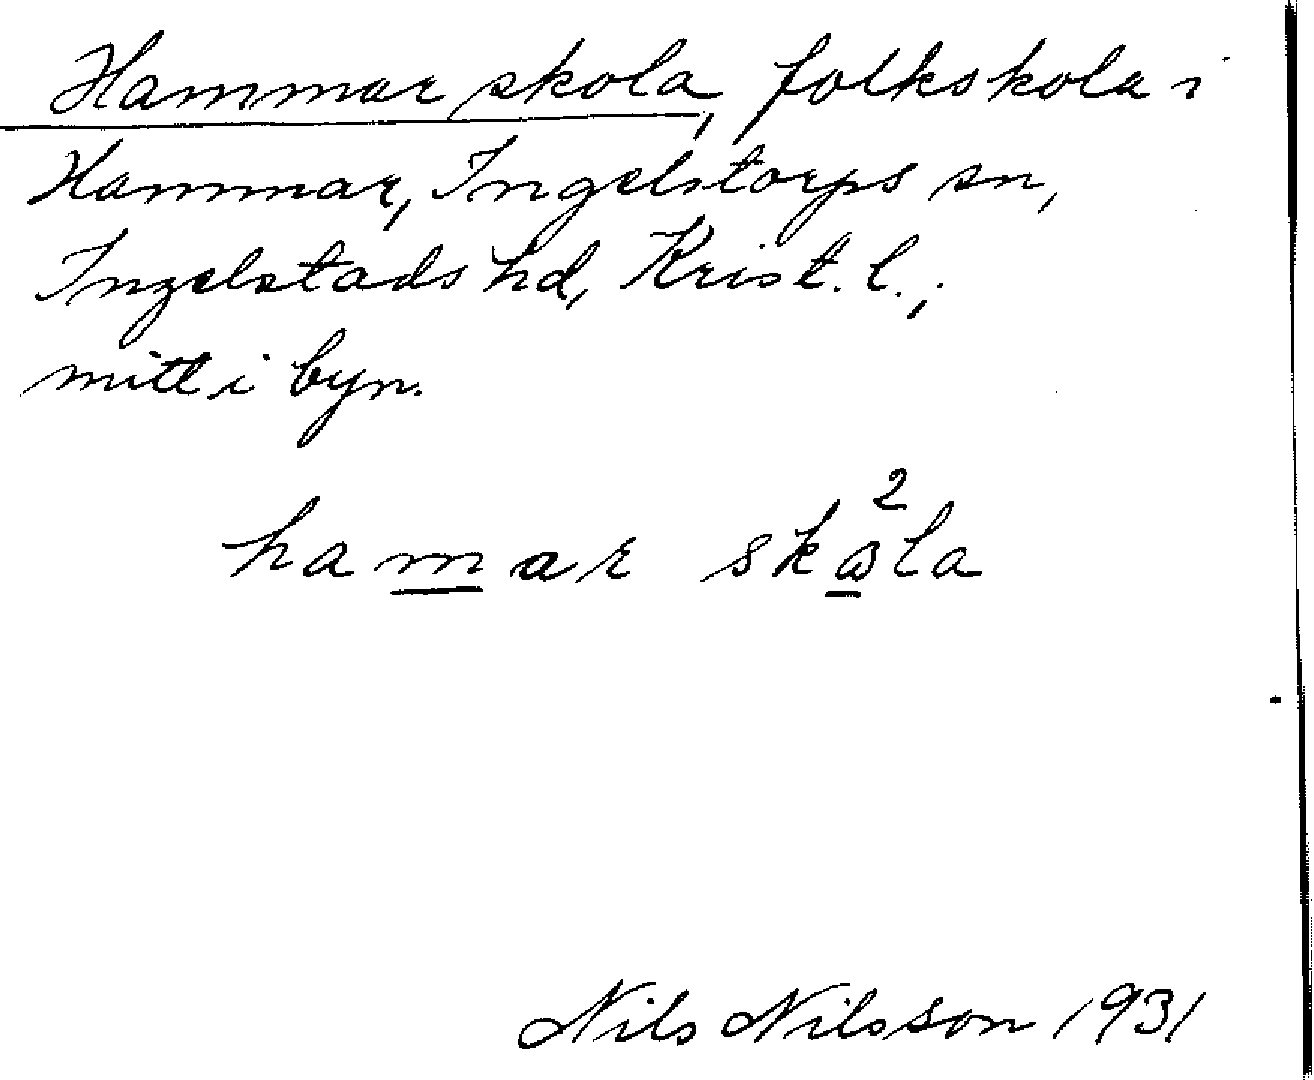 Hammar skola, folkskola i
Hammar, Ingelstorps sn,
Ingelstads hd, Krist. l.,
mitt i byn.
hamar skωla
2
Nils Nilsson 1931